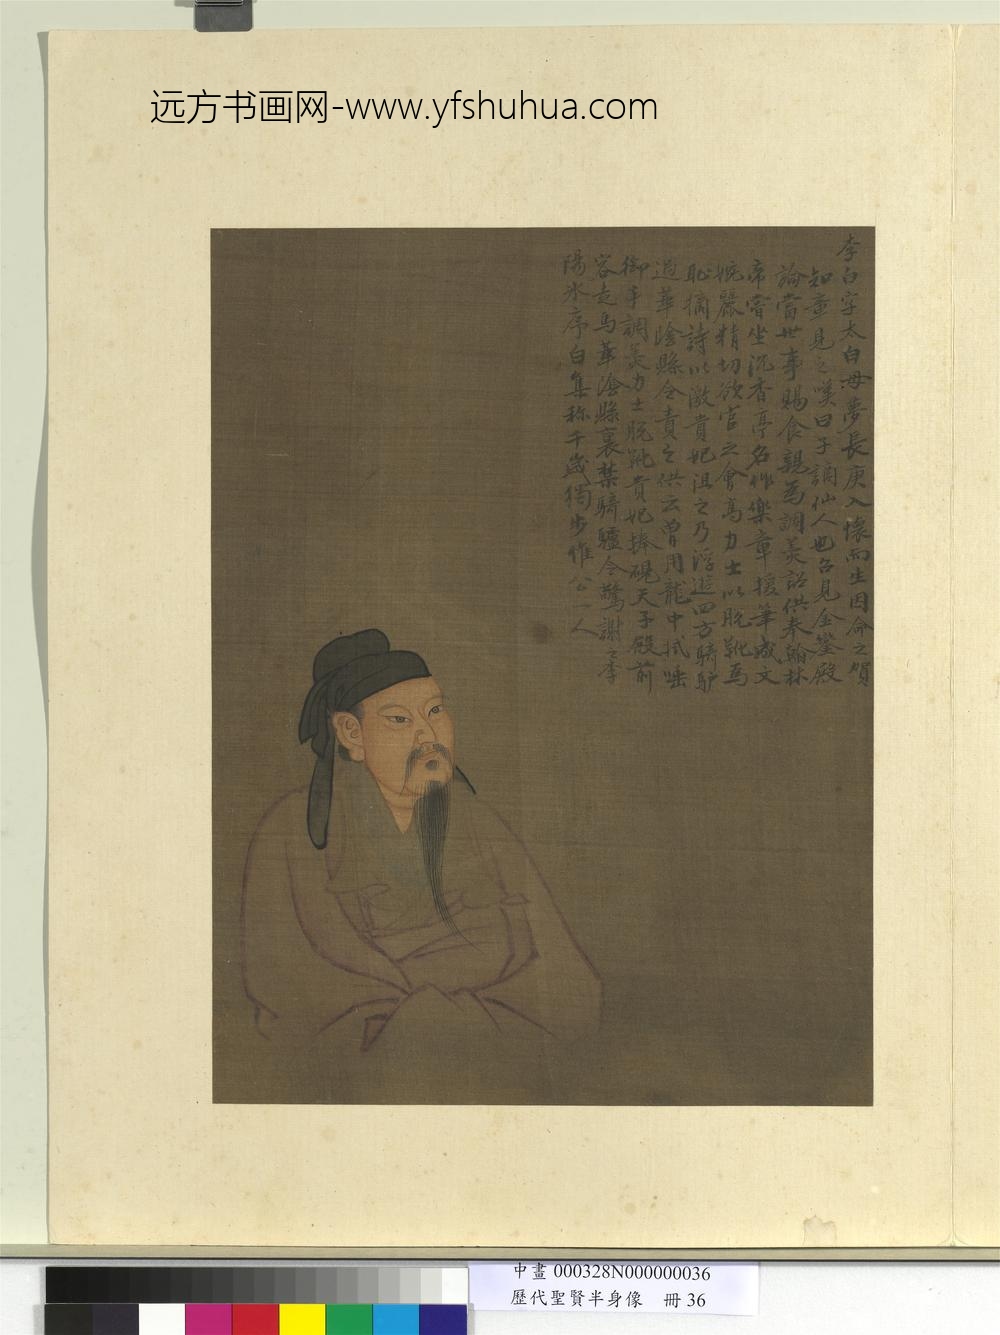 远方书画网-www.yfshuhua.com
李白字太白母夢長庚入懷而生因命之賀
知章見之嘆曰子謫仙人也召見金鑾殿
論當世事賜食親為調羹詔供奉翰林
帝嘗坐沉香亭名作樂章援筆成文
婉麗精切欲官之會高力士以脫靴為
恥摘詩以激貴妃沮之乃浮遊四方騎驴
過華陰縣令責之供云曾用龍巾拭唾
御手調羹力士脫靴貴妃捧硯天子殿前
容走馬華陰縣裏禁騎驢令驚謝之李
陽冰序白集称千歲獨步惟公一人
中畫 000328N000000036
歷代聖賢半身像 冊 36